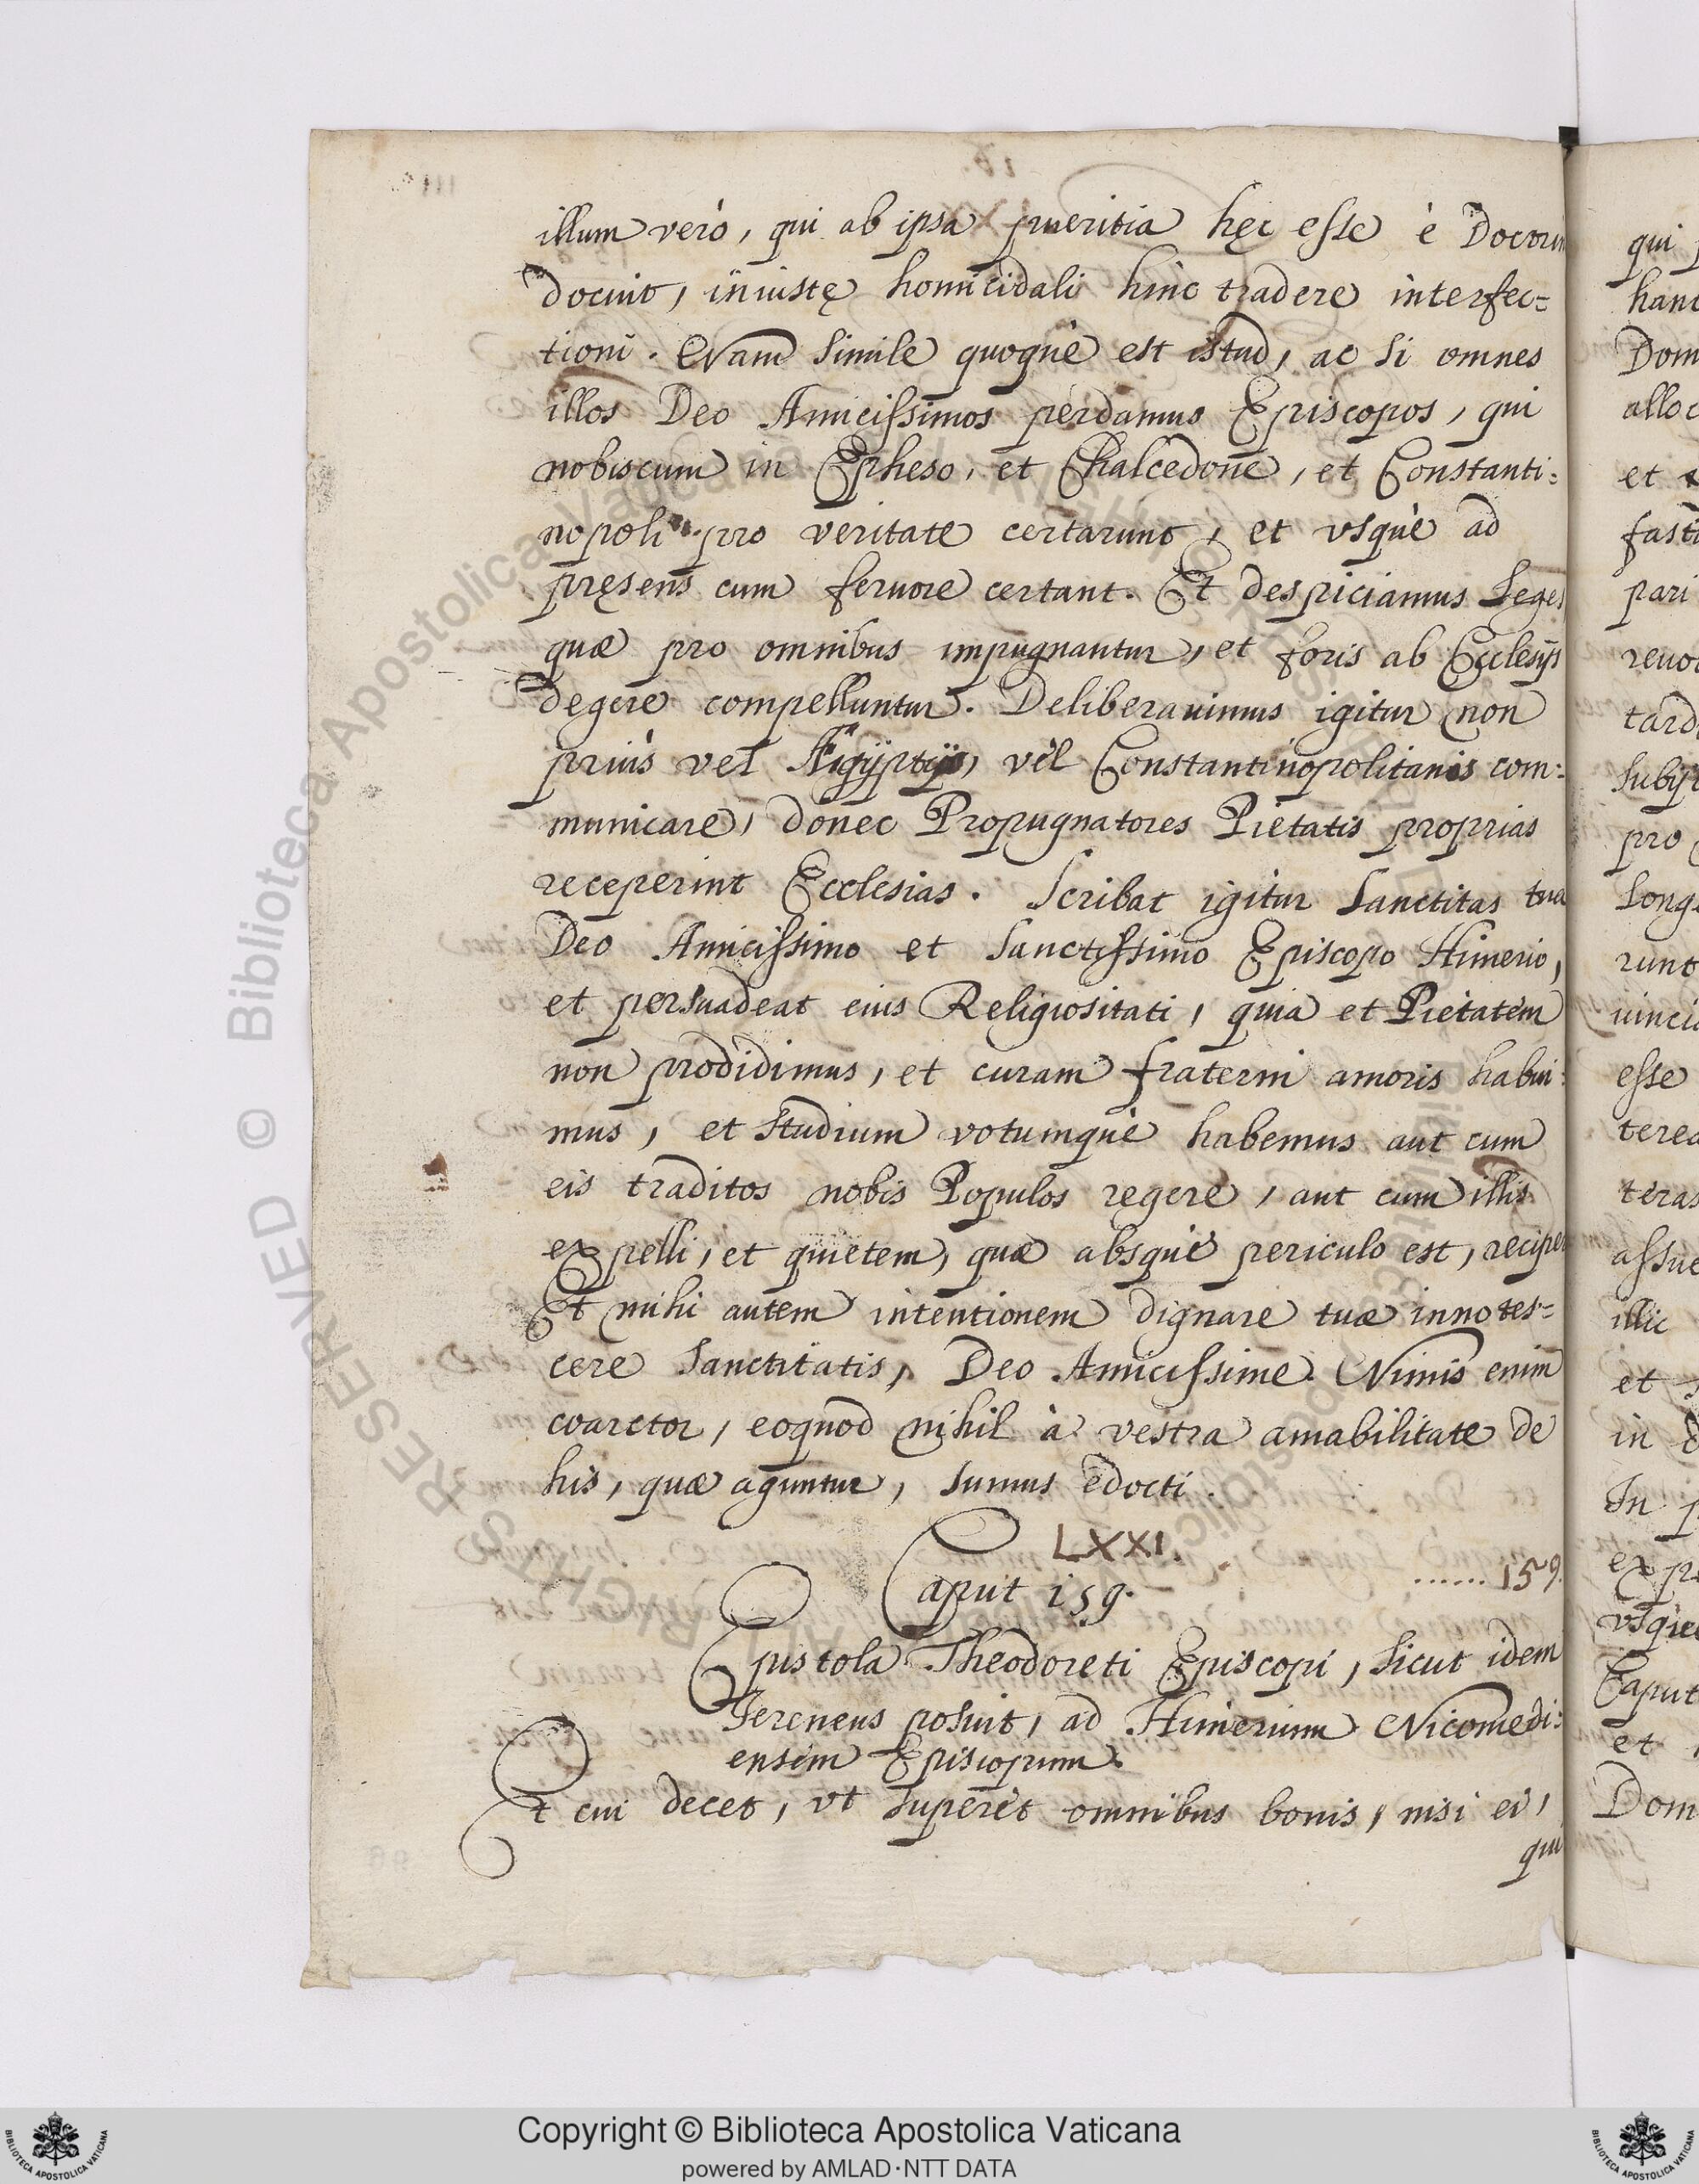 illum verò, qui ab ipsa pueritia hęc esse è
docuit, iniustę homicidali hinc tradere interfec=
tioni. Nam simile quoquè est istud, ac si omnes
illos Deo Amicissimos perdamus Episcopos, qui
nobiscum in Epheso, et Chalcedone, et Constanti=
nopoli pro veritate certarunt, et vsquè ad
pręsens cum feruore certant. Et despiciamus Leges
quæ pro omnibus impugnantur, et foris ab Ecclesijs
degere compelluntur. Deliberauimus igitur non
priùs vel Ægÿptijs, vel Constantinopolitanis com=
municare, donec Propugnatores Pietatis proprias
receperint Ecclesias. Scribat igitur Sanctitas tua
Deo Amicissimo et Sanctissimo Episcopo Himerio,
et persuadeat eius Religiositati, quia et Pietatem
non prodidimus, et curam fraterni amoris habui=
mus, et studium votumquè habemus aut cum
eis traditos nobis Populos regere, aut cum illis
expelli, et quietem, quæ absquè periculo est,
Et mihi autem intentionem dignare tuæ innotes=
cere Sanctitatis, Deo Amicissime. Nimis enim
coarctor, eoquod nihil à vestra amabilitate de
his, quæ aguntur, sumus edocti.
LXXI.
Caput 159. ...... 159.
Epistola Theodoreti Episcopi, sicut idem
Ireneus posuit, ad Himerium Nicomedi=
ensem Episcopum.
Et cui decet, vt superèt omnibus bonis, nisi ei,
qui
qui
Dom
et
pari
tard
pro
runt
esse
illic
et
in
In
Caput
et
Dom
© Biblioteca Apostolica Vaticana
ALL RIGHTS RESERVED
Copyright © Biblioteca Apostolica Vaticana
powered by AMLAD·NTT DATA
BIBLIOTECA APOSTOLICA VATICANA
BIBLIOTECA APOSTOLICA VATICANA